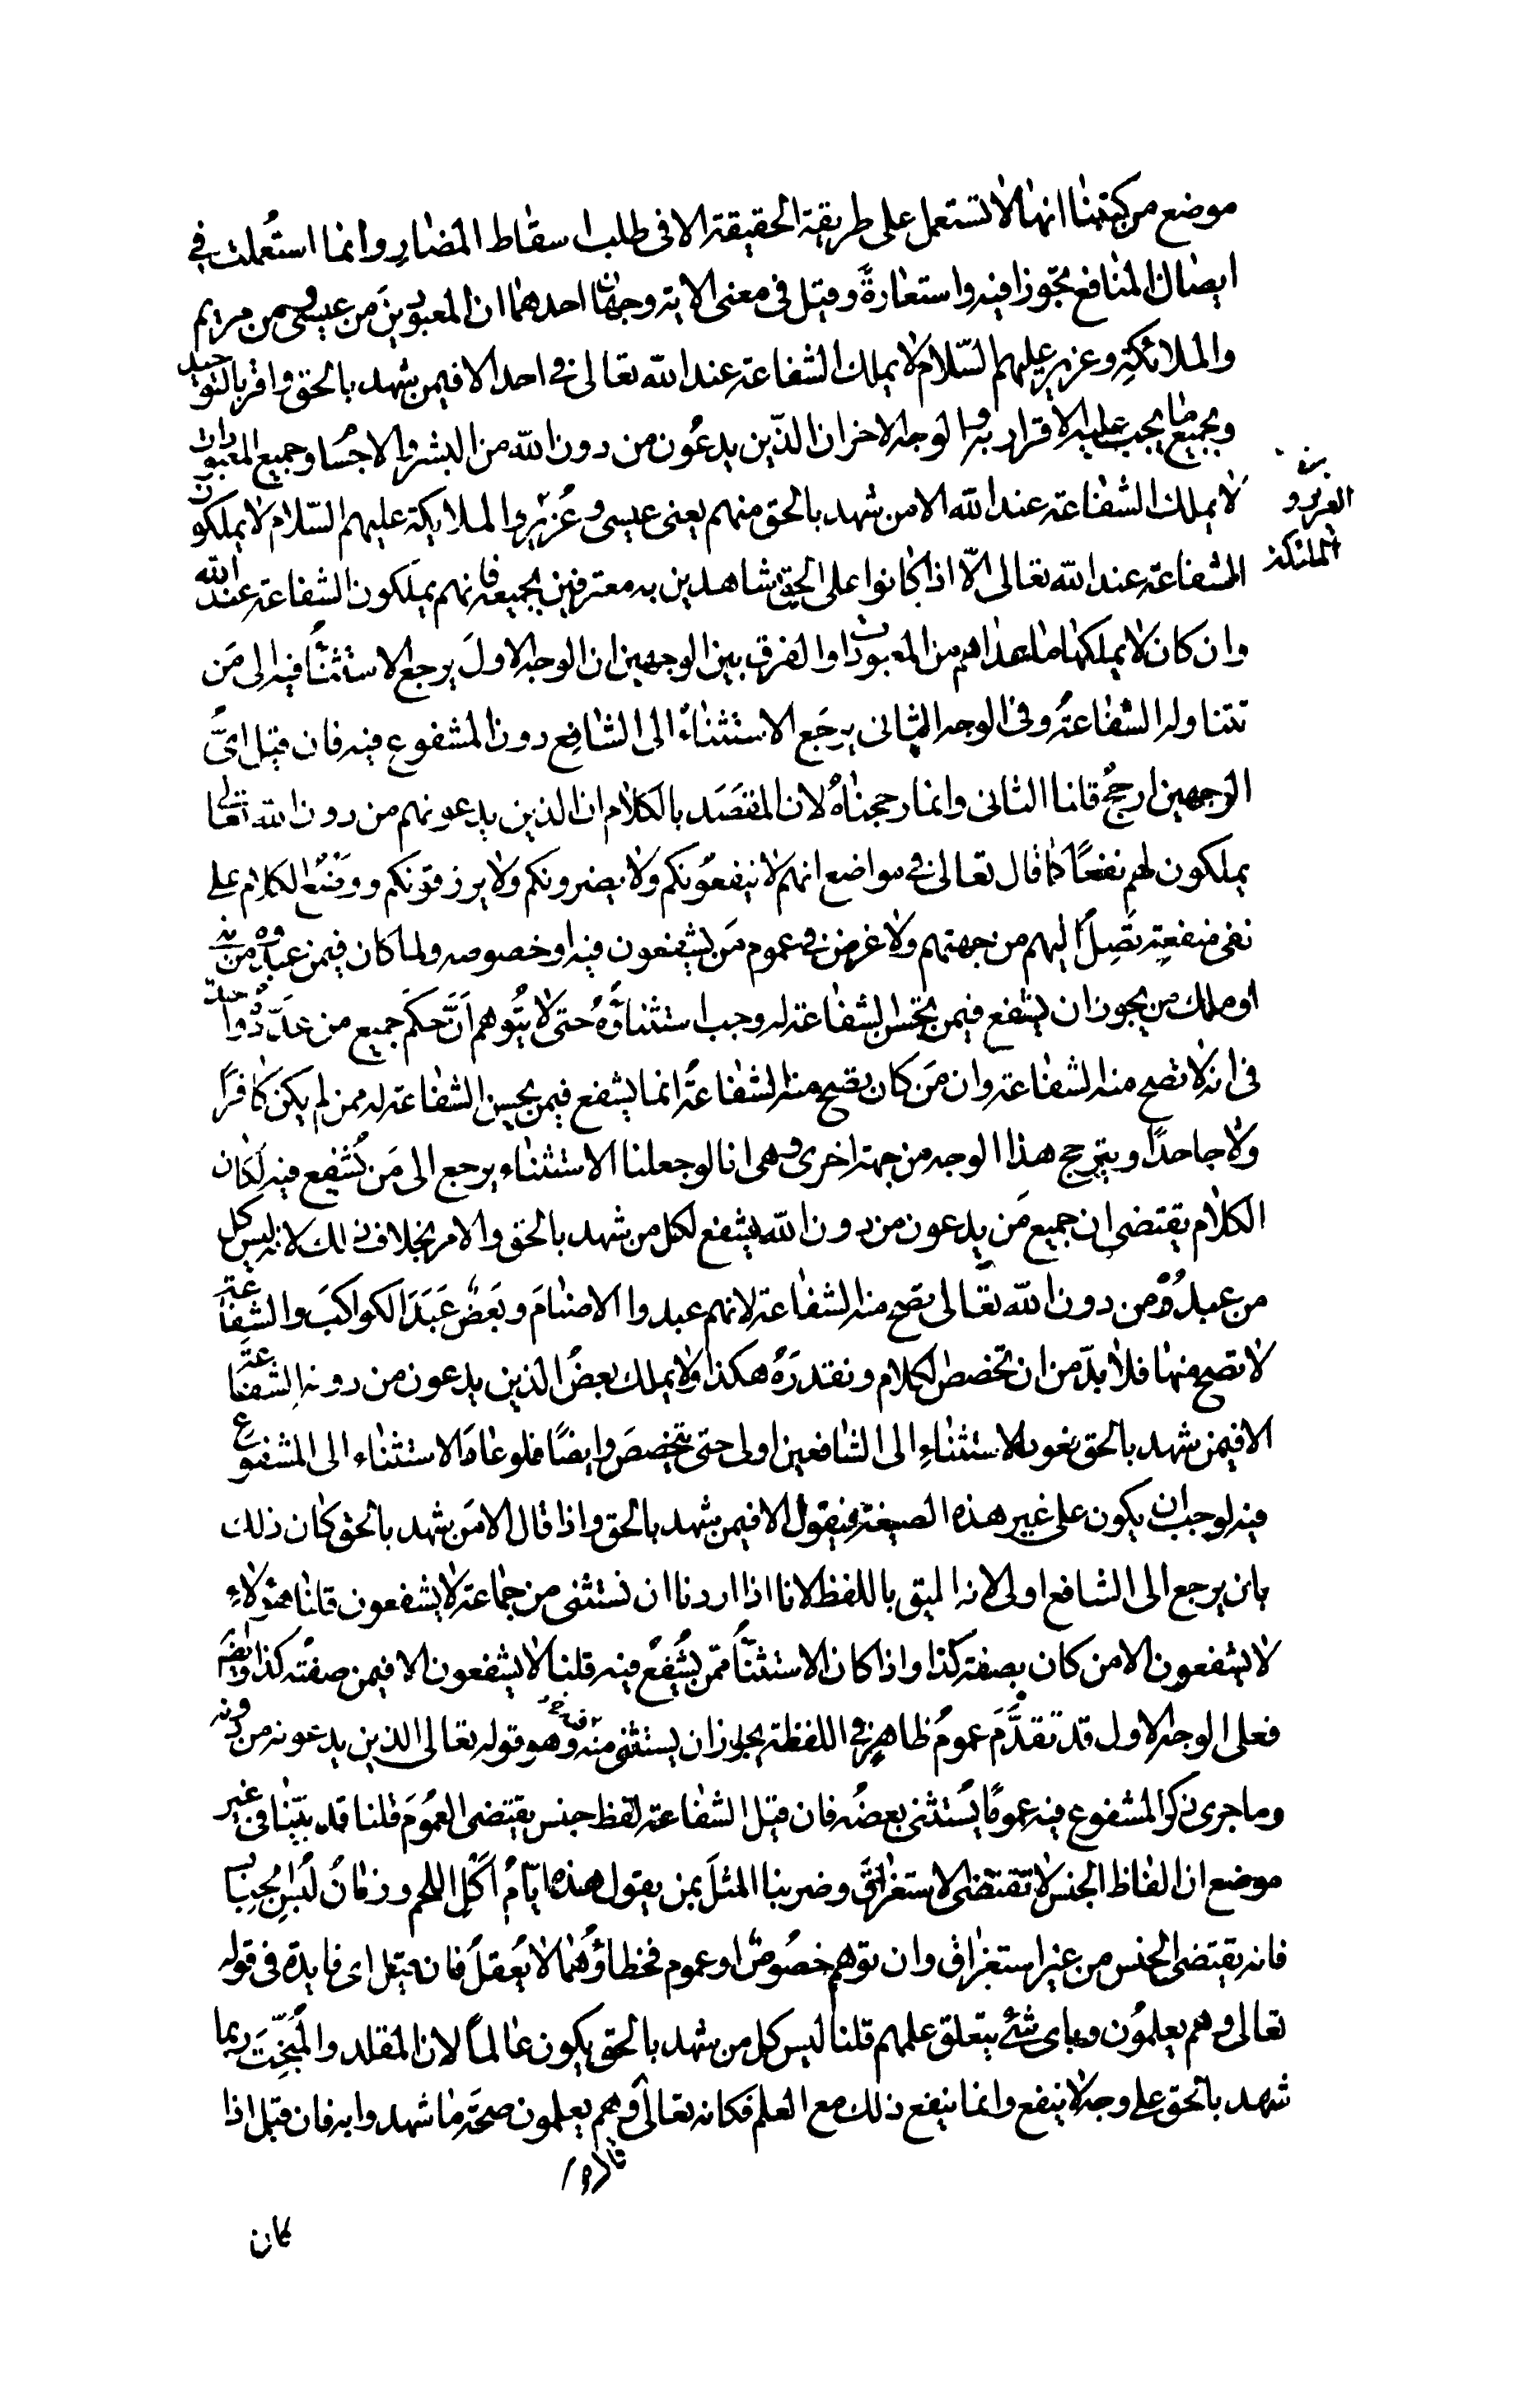 موضع من كتبنا انها لا تستعمل على طريقة الحقيقة الا فى طلب اسقاط المضارِ وانما استُعملت في
ايصال المنافع تجّوزا فيه واستعارةً وقيل فى معنى الاية وجهان احدهما ان المعبودينَ من عيسى بن مريم
والملائكةِ وعزير عليهم السّلام لا يملك الشفاعة عند الله تعالى في احد الا فيمن شهد بالحق واقر بالتوحيد
وبجميع ما يجب عليه الاقرار به والوجه الاخر ان الذّين يدعُون من دون الله من البشر والاجسام وجميع المعبودات
لا يملك الشفاعة عند الله الا من شهد بالحق منهم يعنى عيسى وعُزير والملايكة عليهم السّلام لا يملكون
العزير و
الملئكة
الشفاعة عند الله تعالى الّا اذا كانوا على الحق شاهدين به معترفين بجميعه فانهم يملكون الشفاعة عند الله
وان كان لا يملكها ما عداهم من المعبودات والفرق بين الوجهين ان الوجه الاولَ يرجع الاستثناء فيه الى مَن
تتناوله الشفاعةُ وفى الوجه الثانى يرجَع الاستثناءُ الى الشافِع دون المشفوعِ فيه فان قيل اىُّ
الوجهين ارجحُ قلنا الثانى وانما رجحناهُ لان المقصَد بالكلام ان الذين يدعونهم من دون الله تعالى لا
يملكون لهم نفعًا كما قال تعالى في مواضع انهم لا ينفعُونكم ولا يضرونكم ولا يرزقونكم ووضْعُ الكلام على
نفى منفعةٍ تَصِلُ اليهم من جهتهم ولا غرض في عموم مَن يشفعون فيه او خصوصه ولما كان فيمن عبدوه من نبى
او ملك من يجوز ان يشفع فيمن تحسن الشفاعة له وجب استثناؤُهُ حتى لا يتُوهم اَنَّ حكمَ جميع من عبدوه واحد
فى انه لا تصح منه الشفاعة وان مَن كان يصح منه الشفاعةُ انما يشفع فيمن يحسن الشفاعة له ممن لم يكن كافرًا
ولا جاحدًا ويترجح هذا الوجه من جهة اخرى وهى انا لوجعلنا الاستثناء يرجع الى مَن يُشفع فيه لكان
الكلام يقتضى ان جميع مَن يدعون من دون الله يشفع لكل من شهد بالحق والامر بخلاف ذلك لانه ليس كل
من عبدُوْه من دون الله تعالى يصح منه الشفاعة لانهم عبدوا الاصنامَ وبَعضٌ عَبَدَ الكواكبَ والشفاعة
لا تصح منها فلا بدّ من ان نخصص الكلام ونقدرَهُ هكذا ولا يملك بعضُ الذين يدعون من دونه الشفاعةَ
الا فيمن شهد بالحق فعود الاستثناءِ الى الشافعين اولى حتى يتخصصَ وايضًا فلو عاد الاستثناء الى المشفوعِ
فيه لوجب ان يكون على غير هذه الصيغة فيقول الا فيمن شهد بالحق واذا قال الا مَن شهد بالحق كان ذلك
بان يرجع الى الشافع اولى لانه اليق باللفظ لانا اذا اردنا ان نستثنى من جماعة لا يشفعون قلنا هؤلاءِ
لا يشفعون الا من كان بصفة كذا واذا كان الاستثناءُ ممّن يُشْفَعُ فيه قلنا لا يشفعون الا فيمن صفتُه كذا وايضًا
فعلى الوجه الاول قد تَقَدَّمَ عمومٌ ظاهرٌ في اللفظة يجوز ان يستثنى منه وهو قوله تعالى الذين يدعونه من دونه
وما جرى ذكر المشفوع فيه عمومًا يُستثنى بعضُه فان قيل الشفاعة لفظ جنس يقتضى العمُومَ قلنا قد بيّنا فى غير
موضع ان الفاظ الجنس لا تقتضى الاستغراقَ وضربنا المثلَ بمن يقول هذه ايّامُ اَكْلِ اللحم وزمانُ لُبْسِ الجبابِ
فانه يقتضى الجنس من غير استغراق وان توهم خصُوصٌ او عموم فخطاؤُهُما لا يُعقلُ فان قيل اى فايدة فى قوله
تعالى وهم يعلمُون وباى شئ يتعلق علمهم قلنا ليس كل من شهد بالحق يكون عالمًا لان المقلد والمُبَخِّتَ ربما
شهد بالحق على وجه لا ينفع وانما ينفع ذلك مع العلم فكانه تعالى قال وهم يعلمون صحَة ما شهدوا به فان قيل اذا
كان